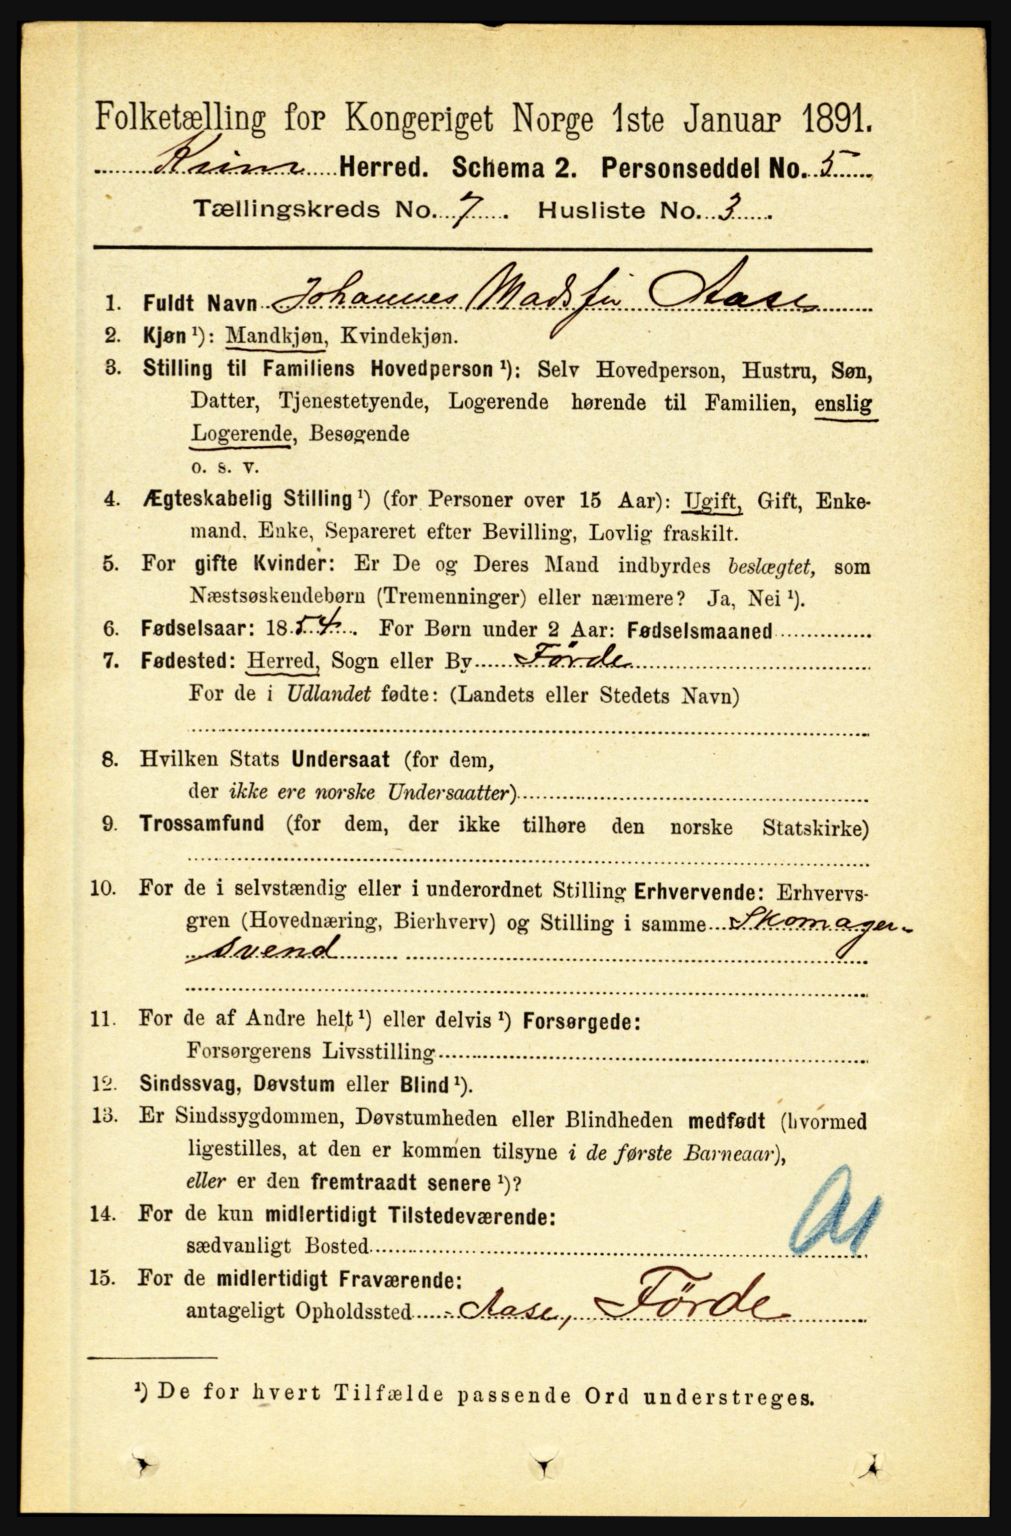 Folketælling for Kongeriget Norge 1ste Januar 1891.
Kinn Herred. Schema 2. Personseddel No. 5
Tællingskreds No. 7. Husliste No. 3.
1. Fuldt Navn Johannes Madsen Aase
2. Kjøn ¹): Mandkjøn, Kvindekjøn.
3. Stilling til Familiens Hovedperson ¹): Selv Hovedperson, Hustru, Søn,
Datter, Tjenestetyende, Logerende hørende til Familien, enslig
Logerende, Besøgende
o. s. v.
4. Ægteskabelig Stilling ¹) (for Personer over 15 Aar): Ugift, Gift, Enke-
mand, Enke, Separeret efter Bevilling, Lovlig fraskilt.
5. For gifte Kvinder: Er De og Deres Mand indbyrdes beslægtet, som
Næstsøskendebørn (Tremenninger) eller nærmere? Ja, Nei ¹).
6. Fødselsaar: 1854. For Børn under 2 Aar: Fødselsmaaned
7. Fødested: Herred, Sogn eller By Förde
For de i Udlandet fødte: (Landets eller Stedets Navn)
8. Hvilken Stats Undersaat (for dem,
der ikke ere norske Undersaatter)
9. Trossamfund (for dem, der ikke tilhøre den norske Statskirke)
10. For de i selvstændig eller i underordnet Stilling Erhvervende: Erhvervs-
gren (Hovednæring, Bierhverv) og Stilling i samme Skomager-
svend
11. For de af Andre helt ¹) eller delvis ¹) Forsørgede:
Forsørgerens Livsstilling
12. Sindssvag, Døvstum eller Blind ¹).
13. Er Sindssygdommen, Døvstumheden eller Blindheden medfødt (hvormed
ligestilles, at den er kommen tilsyne i de første Barneaar),
eller er den fremtraadt senere ¹)?
14. For de kun midlertidigt Tilstedeværende:
sædvanligt Bosted
15. For de midlertidigt Fraværende:
antageligt Opholdssted Aase, Förde
¹) De for hvert Tilfælde passende Ord understreges.